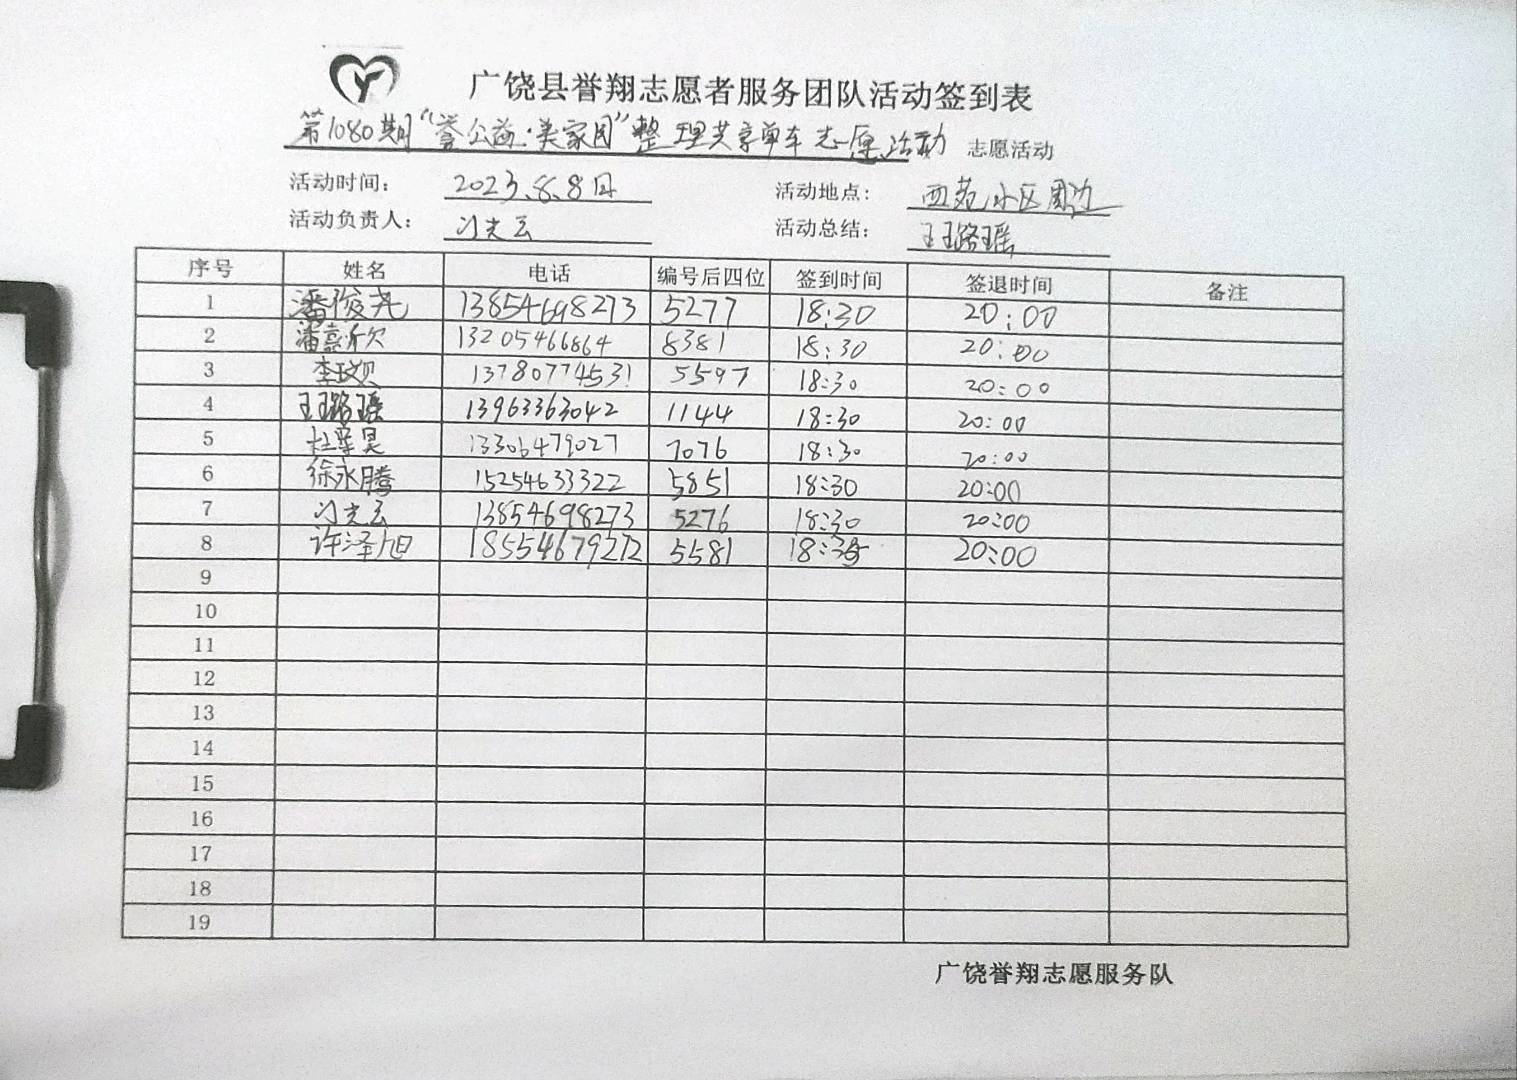 广饶县誉翔志愿者服务团队活动签到表
第1080期“誉公益·美家园”整理共享单车志愿活动 志愿活动
活动时间： 2023.8.8日 活动地点： 西苑小区周边
活动负责人： 冯光云 活动总结： 王璐瑶
序号 姓名 电话 编号后四位 签到时间 签退时间 备注
1 潘俊尧 13854698273 5277 18:30 20:00
2 潘嘉欣 13205466864 8381 18:30 20:00
3 李玟贝 13780774531 5597 18:30 20:00
4 王璐瑶 13963363042 1144 18:30 20:00
5 杜 昊 13306479027 7076 18:30 20:00
6 徐永腾 15254633322 5851 18:30 20:00
7 冯光云 13854698273 5276 18:30 20:00
8 许泽旭 18554679272 5581 20:00
9
10
11
12
13
14
15
16
17
18
19
广饶誉翔志愿服务队